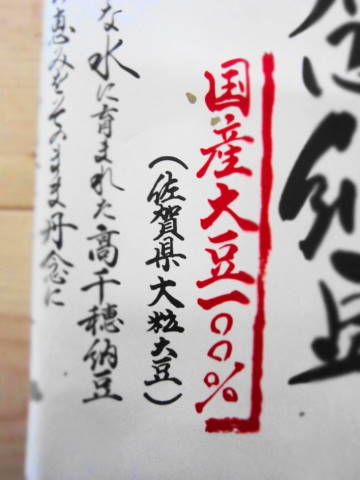 納豆
国産大豆一〇〇%
(佐賀県大粒大豆)
な水に育まれた高千穂納豆
恵みをそのまま丹念に